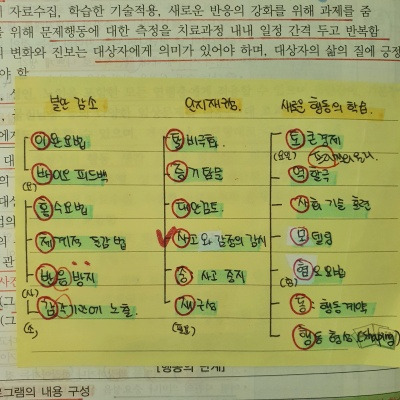 의 자료수집, 학습한 기술적용, 새로운 반응의 강화를 위해 과제를 줌
를 위해 문제행동에 대한 측정을 치료과정 내내 일정 간격 두고 반복함
의 변화와 진보는 대상자에게 의미가 있어야 하며, 대상자의 삶의 질에 긍정
야 함
불안 감소
인지재구성
새로운 행동의 학습
이완요법
바이오 피드백
홍수요법
체계적 둔감법
반응 방지
탈비극화
증거탐문
대안검토
사고와 감정의 감시
사고 중지
재구성
토큰경제
프리맥의 원리
역할극
사회 기술 훈련
모델링
혐오요법
행동계약
행동 형성 (shaping)
프로그램의 내용 구성